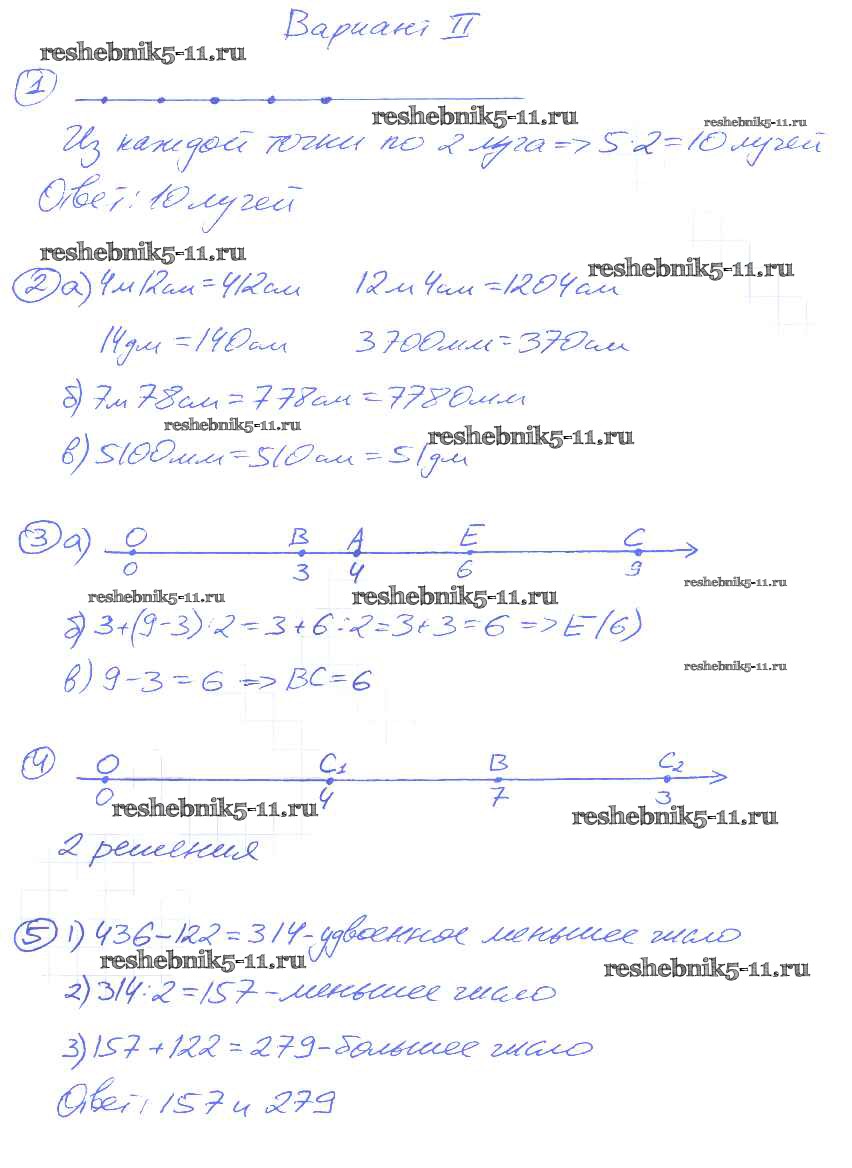 Вариант II
reshebnik5-11.ru
1
reshebnik5-11.ru
reshebnik5-11.ru
Из каждой точки по 2 луча => 5·2=10 лучей
Ответ: 10 лучей
reshebnik5-11.ru
reshebnik5-11.ru
2 а) 4м 12см = 412см 12м 4см = 1204см
14дм = 140см 3700мм = 370см
б) 7м 78см = 778см = 7780мм
reshebnik5-11.ru
reshebnik5-11.ru
в) 5100мм = 510см = 51дм
3 а) O B A E C
0 3 4 6 9
reshebnik5-11.ru
reshebnik5-11.ru
reshebnik5-11.ru
б) 3+(9-3):2=3+6:2=3+3=6 => E(6)
reshebnik5-11.ru
в) 9-3=6 => BC=6
4 O C1 B C2
0 4 7 3
reshebnik5-11.ru
reshebnik5-11.ru
2 решения
5 1) 436-122=314 - удвоенное меньшее число
reshebnik5-11.ru
reshebnik5-11.ru
2) 314:2=157 - меньшее число
3) 157+122=279 - большее число
Ответ: 157 и 279